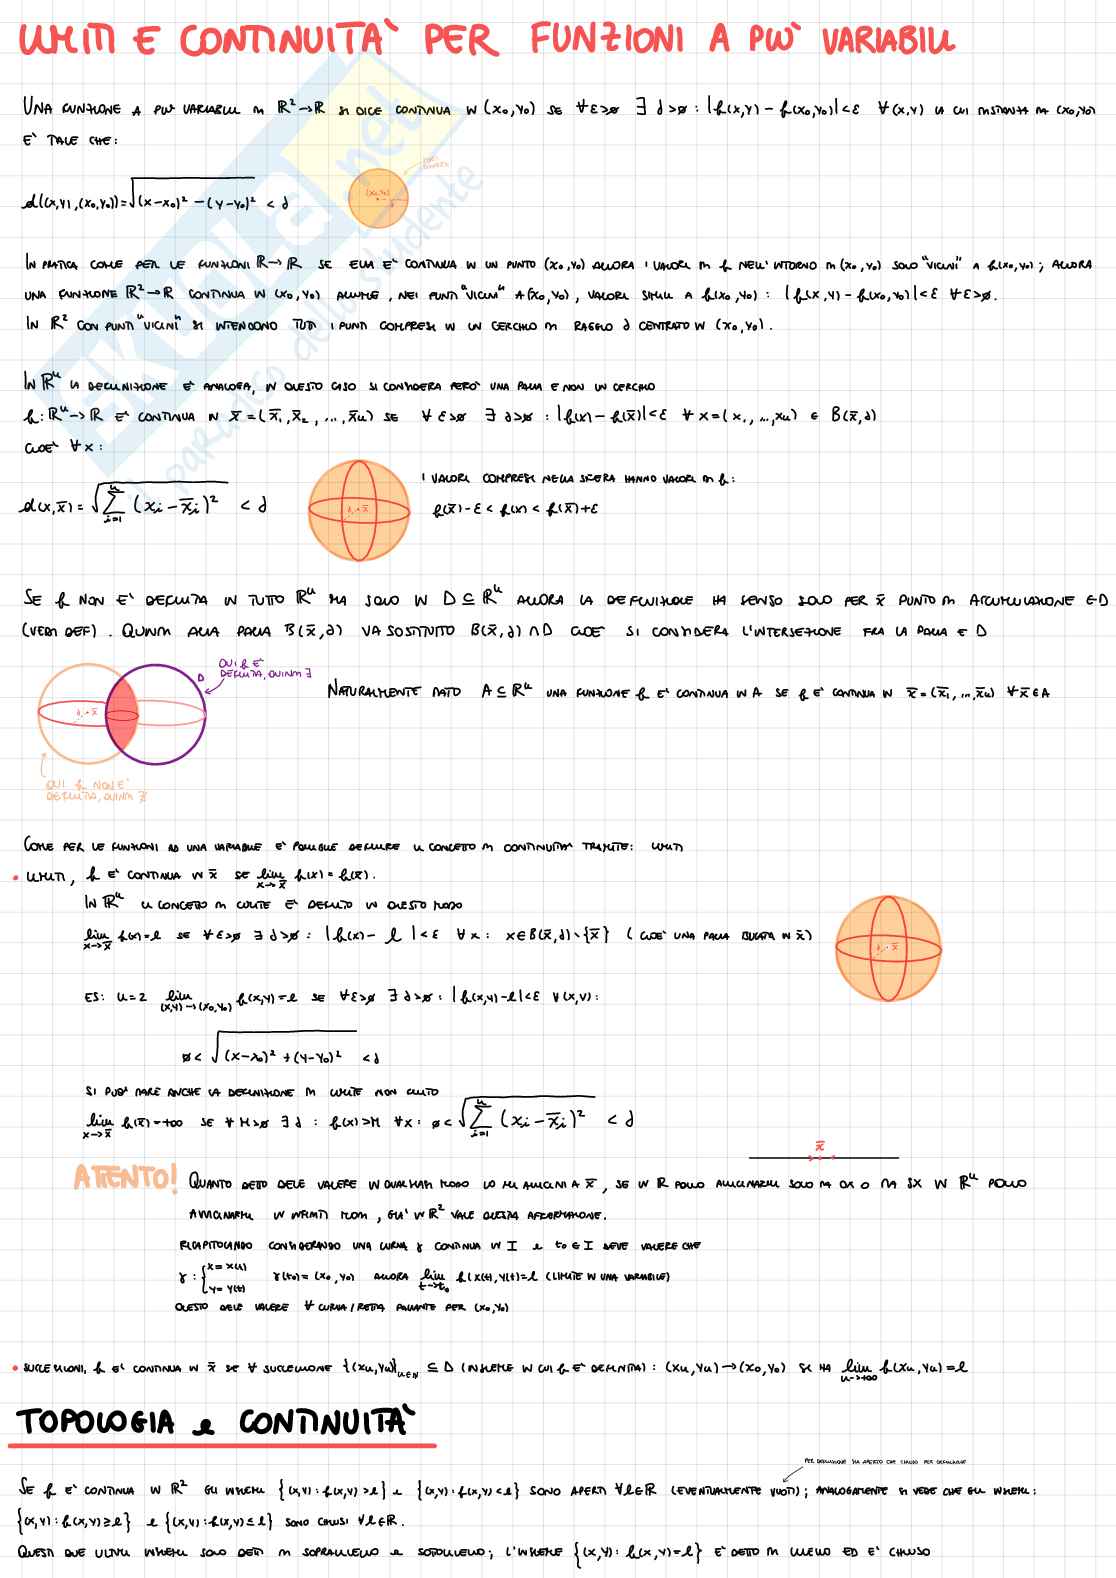 LIMITI E CONTINUITA' PER FUNZIONI A PIU' VARIABILI
UNA FUNZIONE A PIU' VARIABILI DI ℝ²→ℝ SI DICE CONTINUA IN (x₀,y₀) SE ∀ε>0 ∃ δ>0 : |f(x,y) - f(x₀,y₀)|<ε ∀(x,y) LA CUI DISTANZA DA (x₀,y₀)
E' TALE CHE:
d((x,y),(x₀,y₀))=√((x-x₀)² -(y-y₀)²) < δ
(x₀,y₀)
IN PRATICA COME PER LE FUNZIONI ℝ→ℝ SE ESSA E' CONTINUA IN UN PUNTO (x₀,y₀) ALLORA I VALORI DI f NELL'INTORNO DI (x₀,y₀) SONO "VICINI" A f(x₀,y₀); ALLORA
UNA FUNZIONE ℝ²→ℝ CONTINUA IN (x₀,y₀) ASSUME, NEI PUNTI "VICINI" A (x₀,y₀), VALORI SIMILI A f(x₀,y₀) : |f(x,y) - f(x₀,y₀)|<ε ∀ε>0.
IN ℝ² CON PUNTI "VICINI" SI INTENDONO TUTTI I PUNTI COMPRESI IN UN CERCHIO DI RAGGIO δ CENTRATO IN (x₀,y₀).
IN ℝⁿ LA DEFINIZIONE E' ANALOGA, IN QUESTO CASO SI CONSIDERA PERO' UNA PALLA E NON UN CERCHIO
f:ℝⁿ→ℝ E' CONTINUA IN x̄=(x̄₁,x̄₂,...,x̄ₙ) SE ∀ε>0 ∃ δ>0 : |f(x)-f(x̄)|<ε ∀x=(x₁,...,xₙ) ∈ B(x̄,δ)
CIOE' ∀x:
I VALORI COMPRESI NELLA SFERA HANNO VALORI DI f:
d(x,x̄)=√(∑ᵢ₌₁ⁿ (xᵢ-x̄ᵢ)²) < δ
f(x̄)-ε < f(x) < f(x̄)+ε
SE f NON E' DEFINITA IN TUTTO ℝⁿ MA SOLO IN D⊆ℝⁿ ALLORA LA DEFINIZIONE HA SENSO SOLO PER x̄ PUNTO DI ACCUMULAZIONE ∈D
(VEDI DEF). QUINDI ALLA PALLA B(x̄,δ) VA SOSTITUITO B(x̄,δ)∩D CIOE' SI CONSIDERA L'INTERSEZIONE FRA LA PALLA E D
QUI f E'
DEFINITA, QUINDI ∃
D
NATURALMENTE DATO A⊆ℝⁿ UNA FUNZIONE f E' CONTINUA IN A SE f E' CONTINUA IN x̄=(x̄₁,...,x̄ₙ) ∀x̄∈A
QUI f NON E'
DEFINITA, QUINDI ∄
COME PER LE FUNZIONI AD UNA VARIABILE E' POSSIBILE DEFINIRE IL CONCETTO DI CONTINUITA' TRAMITE: LIMITI
• LIMITI, f E' CONTINUA IN x̄ SE lim x→x̄ f(x)=f(x̄).
IN ℝⁿ IL CONCETTO DI LIMITE E' DEFINITO IN QUESTO MODO
lim x→x̄ f(x)=l SE ∀ε>0 ∃ δ>0 : |f(x)- l|<ε ∀x: x∈B(x̄,δ)\{x̄} (CIOE' UNA PALLA BUCATA IN x̄)
ES: n=2 lim (x,y)→(x₀,y₀) f(x,y)=l SE ∀ε>0 ∃ δ>0 : |f(x,y)-l|<ε ∀(x,y):
0< √((x-x₀)² +(y-y₀)²) <δ
SI PUO' DARE ANCHE LA DEFINIZIONE DI LIMITE NON FINITO
lim x→x̄ f(x̄)=+∞ SE ∀M>0 ∃ δ : f(x)>M ∀x: 0<√(∑ᵢ₌₁ⁿ (xᵢ-x̄ᵢ)²) < δ
x̄
ATTENTO! QUANTO DETTO DEVE VALERE IN QUALSIASI MODO IO MI AVVICINI A x̄, SE IN ℝ POSSO AVVICINARMI SOLO DA DX O DA SX IN ℝⁿ POSSO
AVVICINARMI IN INFINITI MODI, GIA' IN ℝ² VALE QUESTA AFFERMAZIONE.
RICAPITOLANDO CONSIDERANDO UNA CURVA γ CONTINUA IN I e t₀∈I DEVE VALERE CHE
γ: { x=x(t) y=y(t) γ(t₀)=(x₀,y₀) ALLORA lim t→t₀ f(x(t),y(t))=l (LIMITE IN UNA VARIABILE)
QUESTO DEVE VALERE ∀ CURVA/RETTA PASSANTE PER (x₀,y₀)
• SUCCESSIONI, f E' CONTINUA IN x̄ SE ∀ SUCCESSIONE {(xₙ,yₙ)}ₙ∈ℕ ⊆D (INSIEME IN CUI f E' DEFINITA) : (xₙ,yₙ)→(x₀,y₀) SI HA lim n→+∞ f(xₙ,yₙ)=l
TOPOLOGIA e CONTINUITA'
PER DEFINIZIONE SIA APERTO CHE CHIUSO PER DEFINIZIONE
SE f E' CONTINUA IN ℝ² GLI INSIEMI {(x,y):f(x,y)>l} e {(x,y):f(x,y)<l} SONO APERTI ∀l∈ℝ (EVENTUALMENTE VUOTI); ANALOGAMENTE SI VEDE CHE GLI INSIEMI:
{(x,y):f(x,y)≥l} e {(x,y):f(x,y)≤l} SONO CHIUSI ∀l∈ℝ.
QUESTI DUE ULTIMI INSIEMI SONO DETTI DI SOPRALIVELLO e SOTTOLIVELLO; L'INSIEME {(x,y): f(x,y)=l} E' DETTO DI LIVELLO ED E' CHIUSO